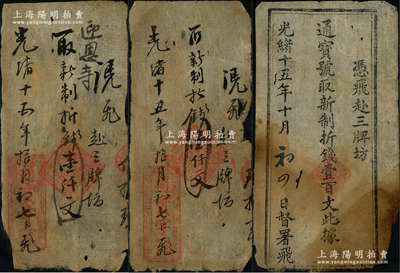 上海陽明拍賣
迎恩寺
憑飛赴三牌坊
取新制折錢壹仟文
光緒十五年拾月初七日飛
上海陽明拍賣
憑飛赴三牌坊
取新制折錢仟文
光緒十五年拾月初七日飛
上海陽明拍賣
憑飛赴三牌坊
通寶號取新制折錢壹百文此據
光緒十五年十月初日督署飛